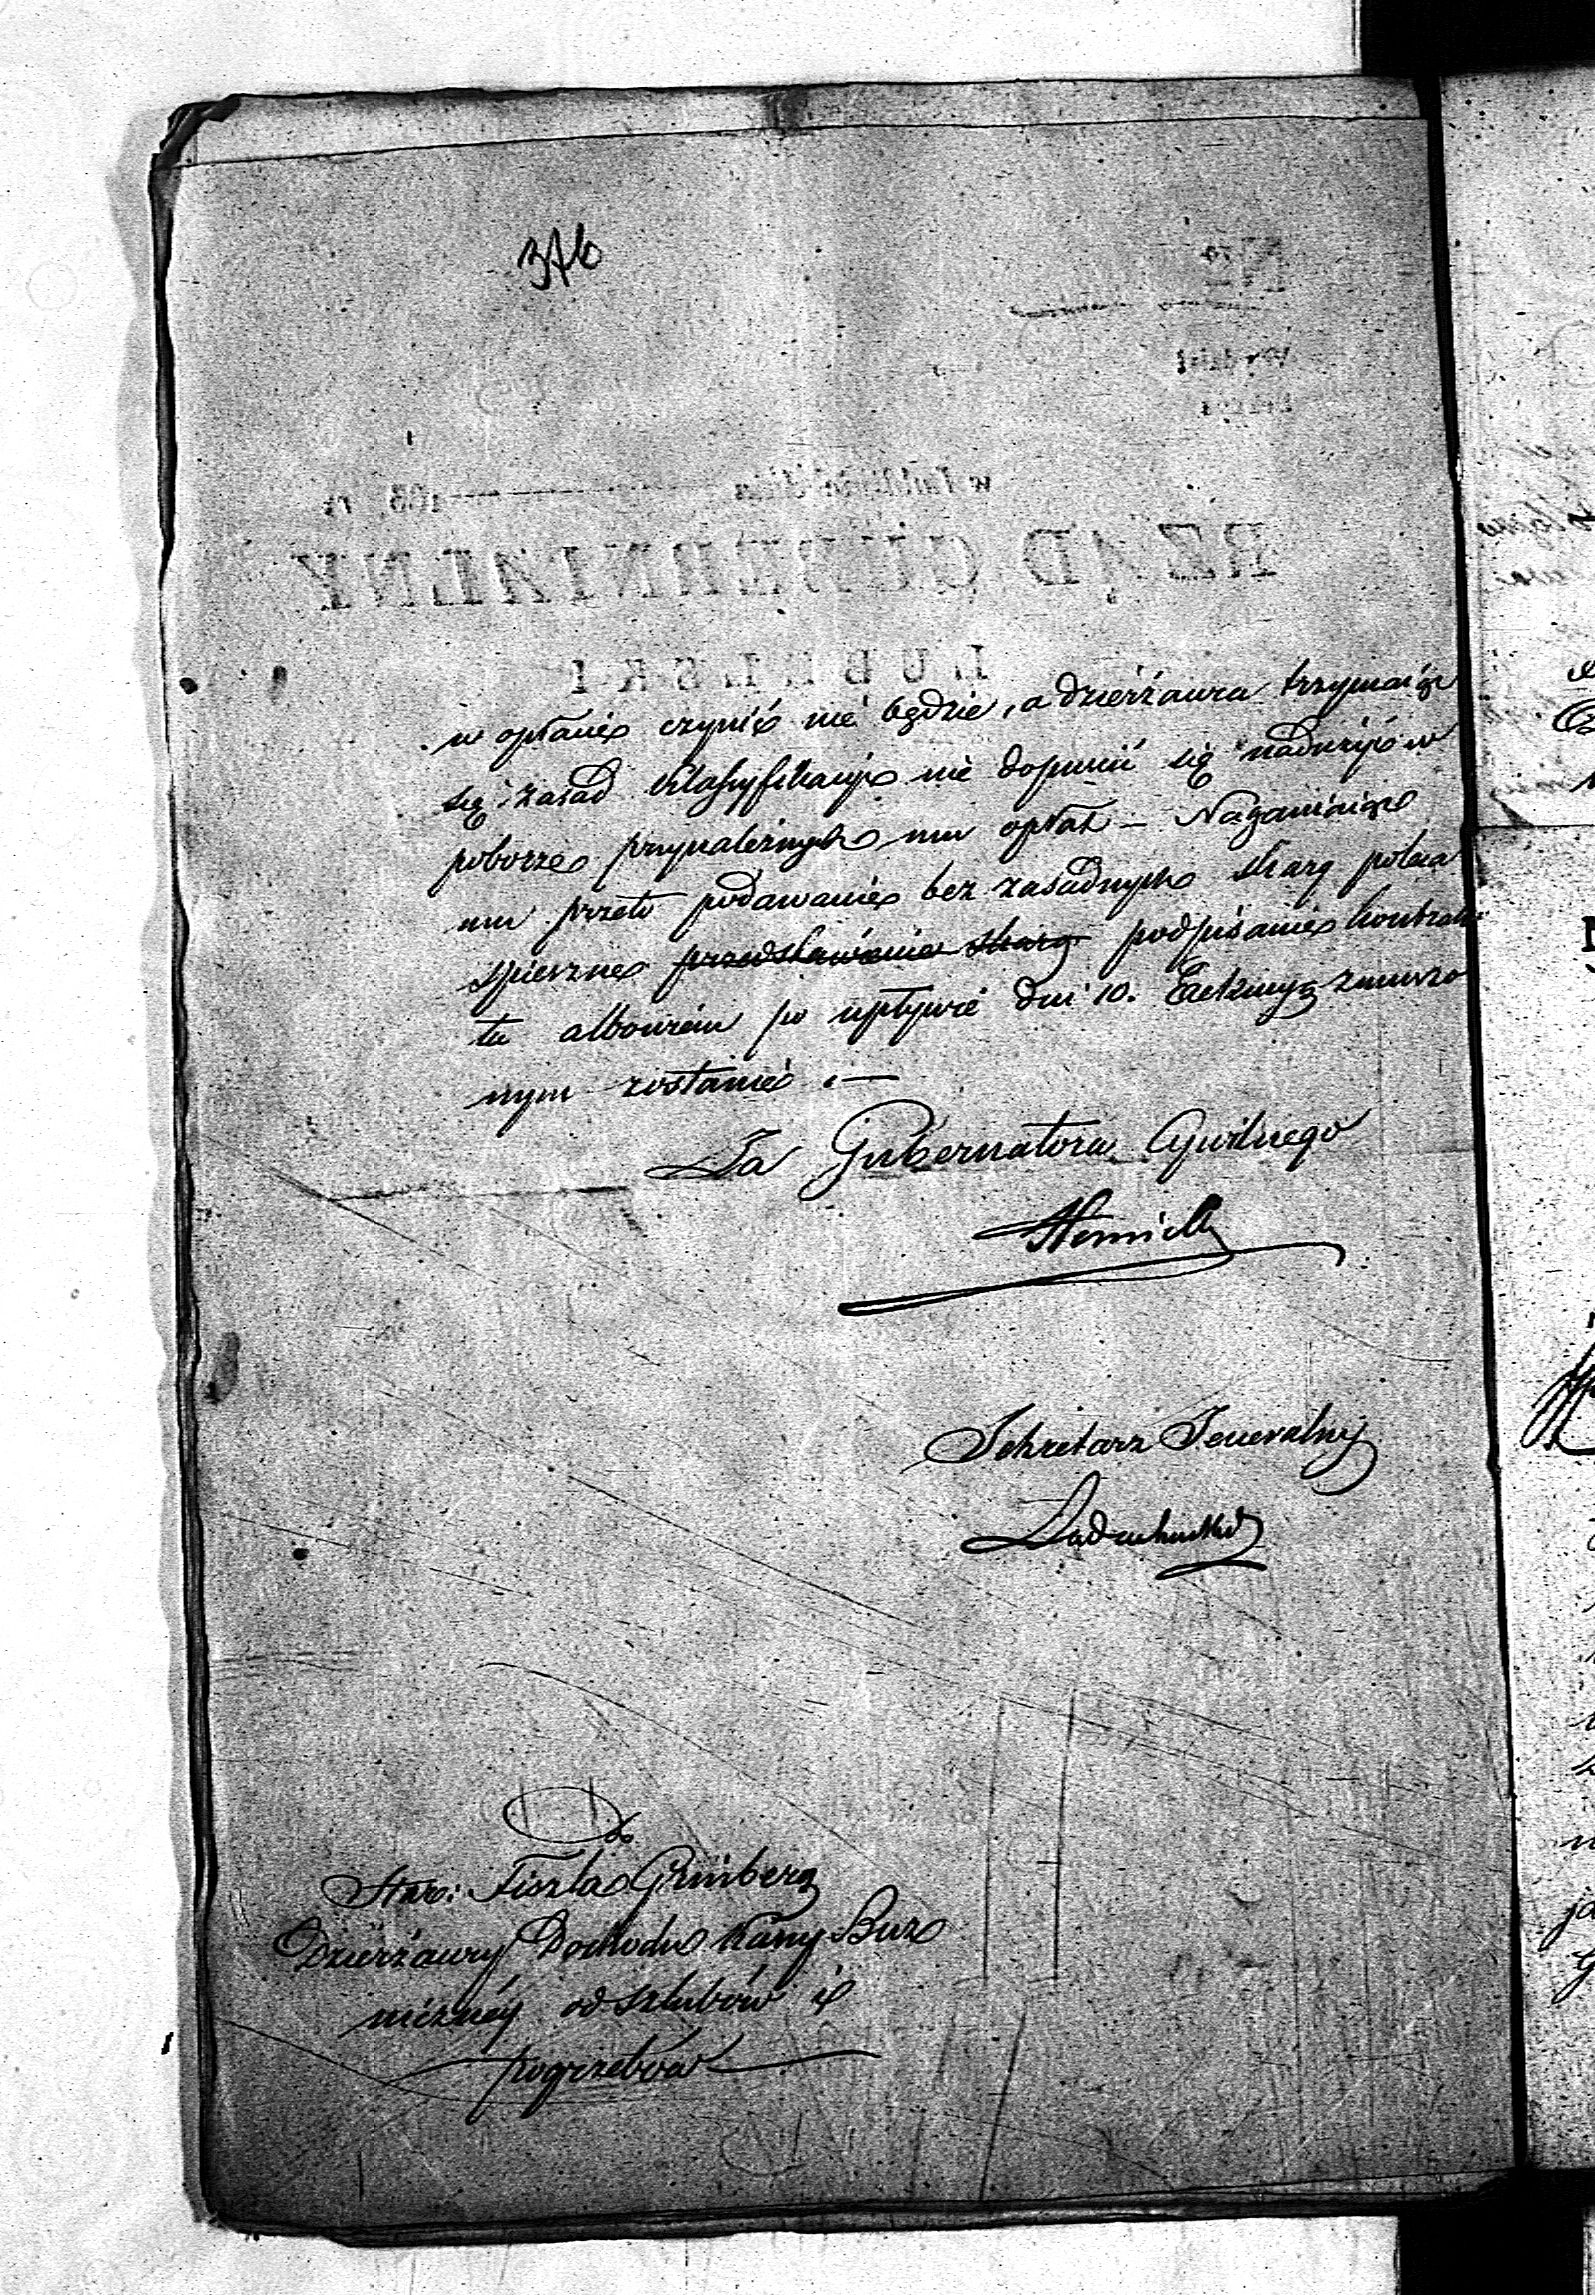 37b
w opłacie czynić nie będzie, a dzierżawca trzymaiąc
się zasad klassyfikacyi nie dopuści się nadużyciów
poborze przynależnych mu opłat — Naganiaiąc
mu przeto podawanie bez zasadnych skarg poleca
spieszne przedstawienie skarg podpisanie kontrak
tu albowiem po upływie dni 10. Exekucyą zmuszo
nym zostanie. —
Za Gubernatora Cywilnego
Sekretarz Jeneralny
Do
Staro: Fiszla Grinberg
Dzierżawcy Dochodu Kassy Buz
niczney od szlubów i
pogrzebów